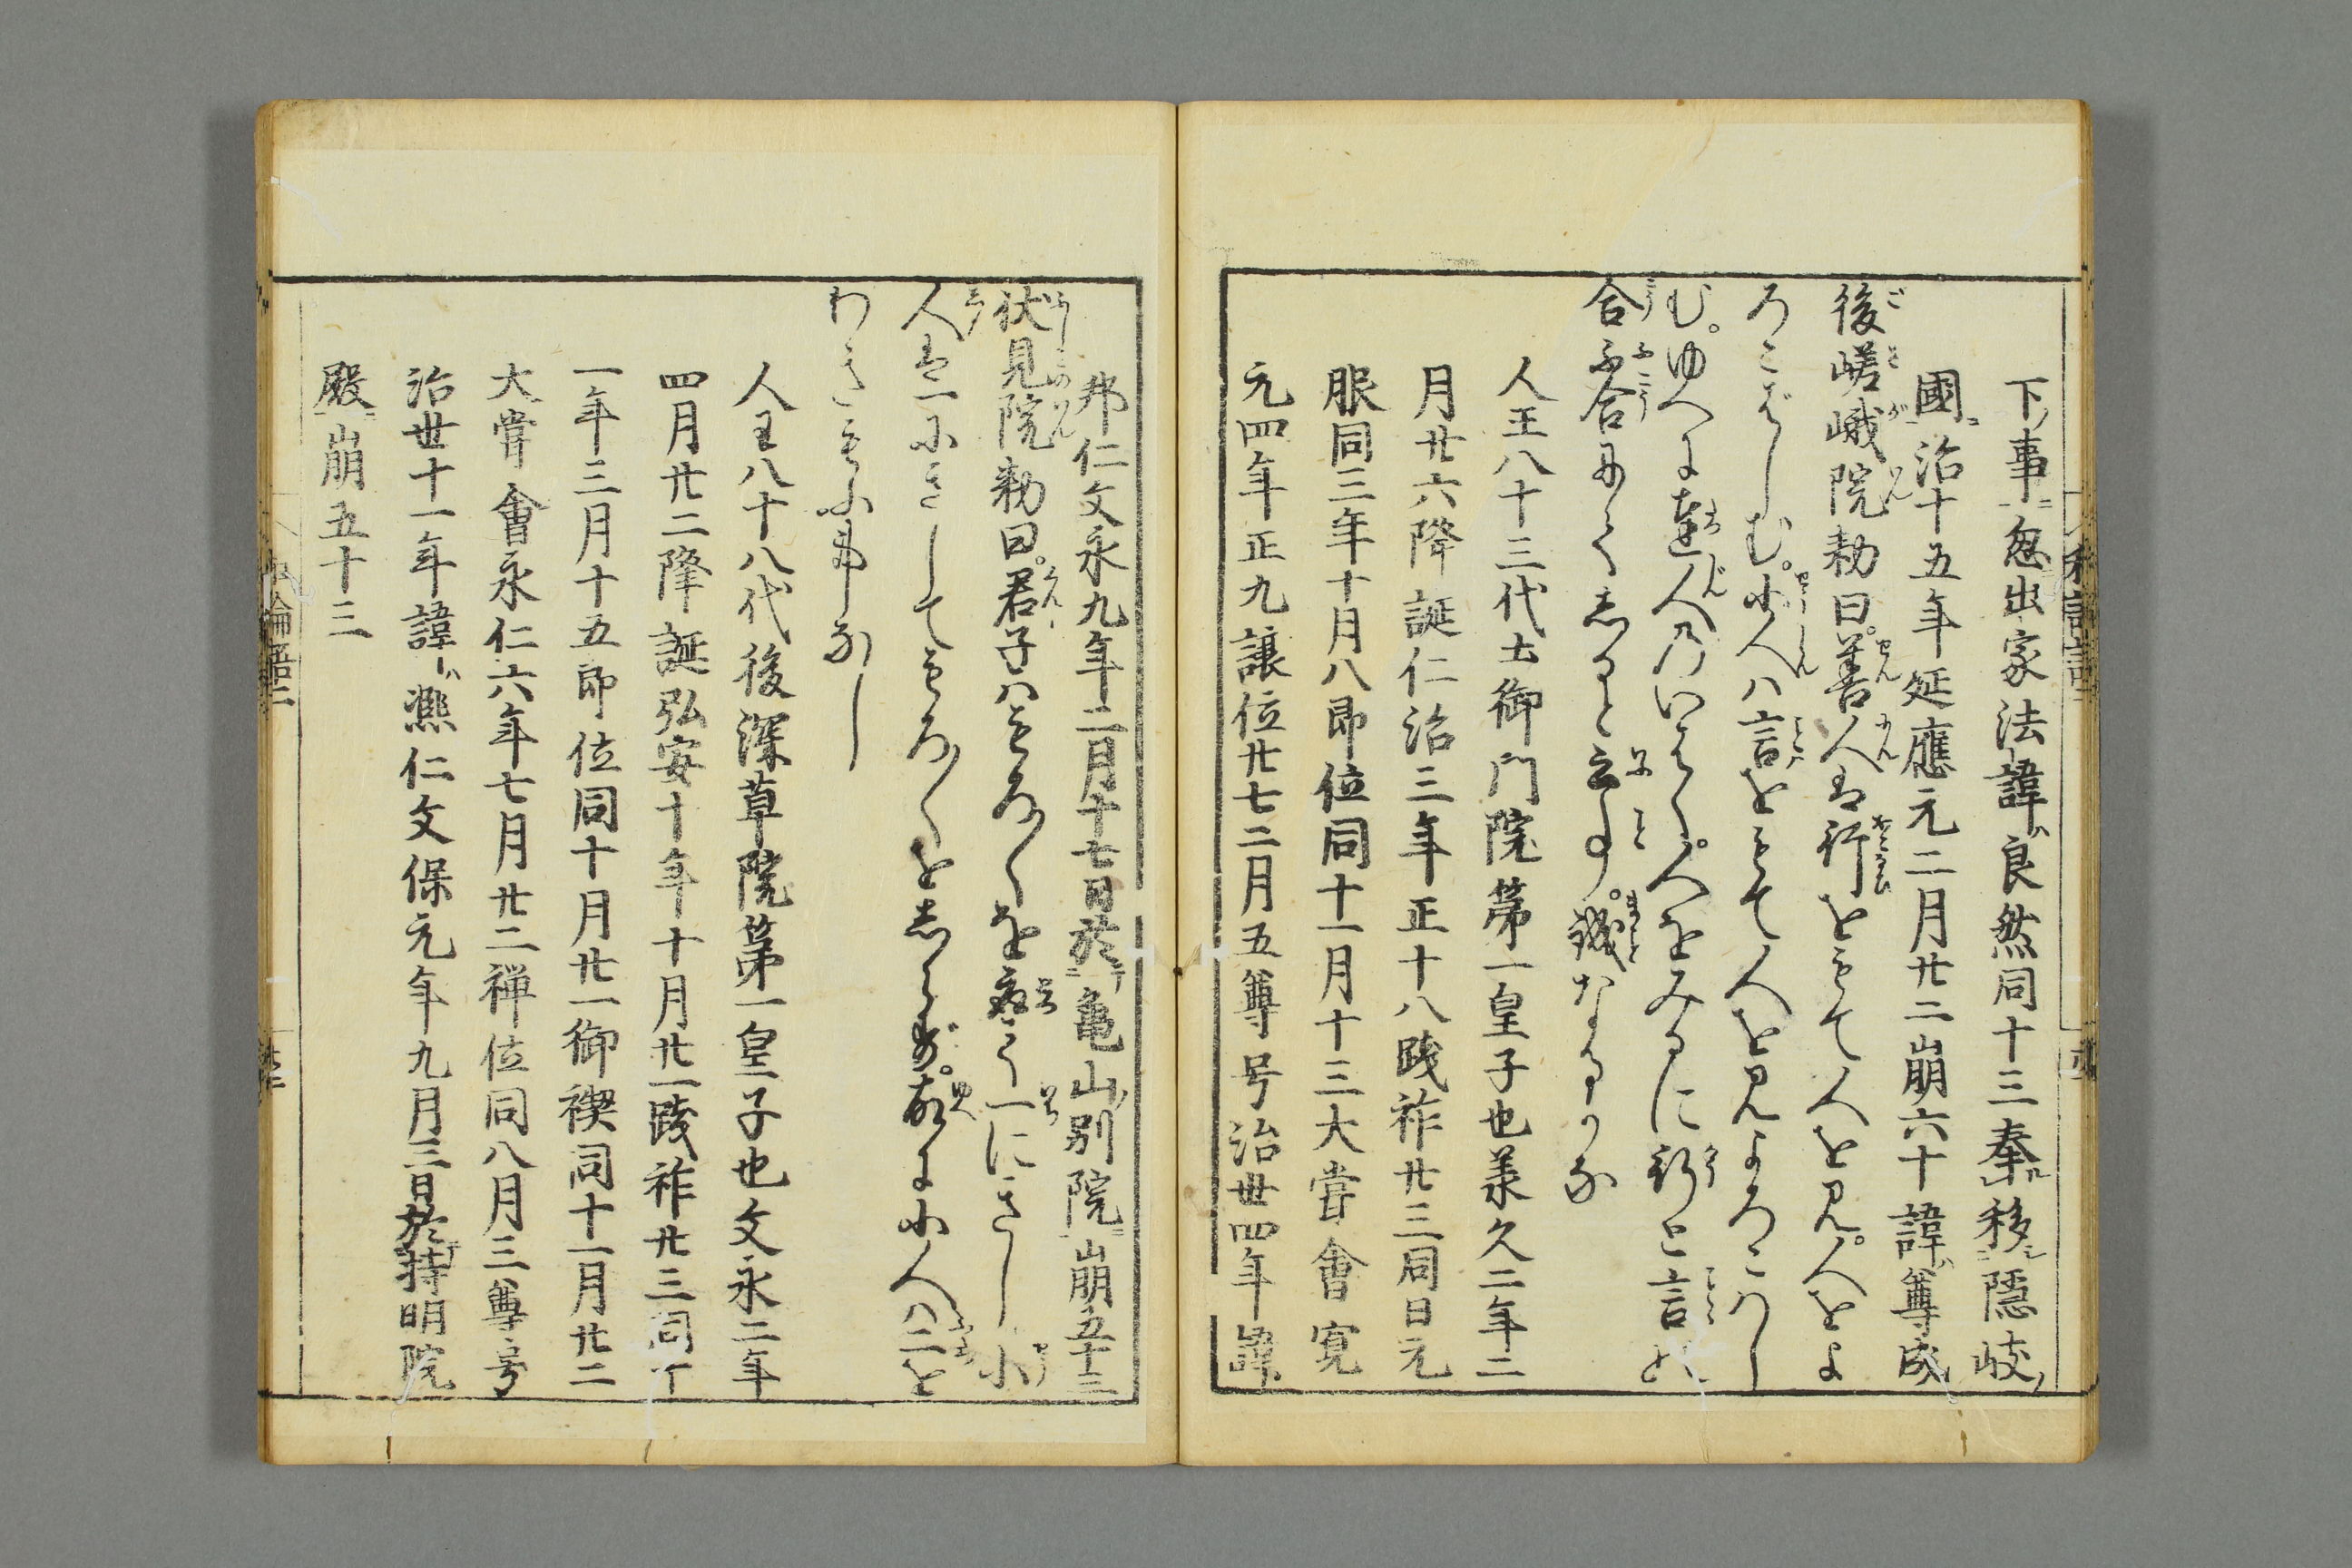 下ノ事ニ忽出家法諱ハ良然同十三奉ル移シニ隠岐ノ
國ニ治十五年延應元二月廿二崩六十諱ハ尊成
後嵯峨院勅曰。善人は行をもて人を見。人をよ
ろこばしむ。小人ハ言をもて人を見よろこばし
む。ゆへに達人のいはく。人をみるに行と言と
合不合にてしると云事。誠なるかな
人王八十三代土御門院第一皇子也兼久二年二
月廿六降誕仁治三年正十八踐祚廿三同日元
服同三年十月八即位同十一月十三大嘗會寛
元四年正九讓位廿七二月五尊号治世四年諱ハ
邦仁文永九年二月十七日於テニ亀山ノ別院ニ崩五十三
伏見院勅曰。君子ハもろ〳〵を一にさし小
人は一にさしてもろ〳〵をしらず。故に小人ハ二を
わきもふ事なし
人王八十八代後深草院第一皇子也文永二年
四月廿二降誕弘安十年十月廿一踐祚廿三同丁
一年三月十五即位同十月廿一御禊同十一月廿二
大嘗會永仁六年七月廿二禅位同八月三尊号
治世十一年諱ハ熈仁文保元年九月三日於テ持明院
殿ニ崩五十三